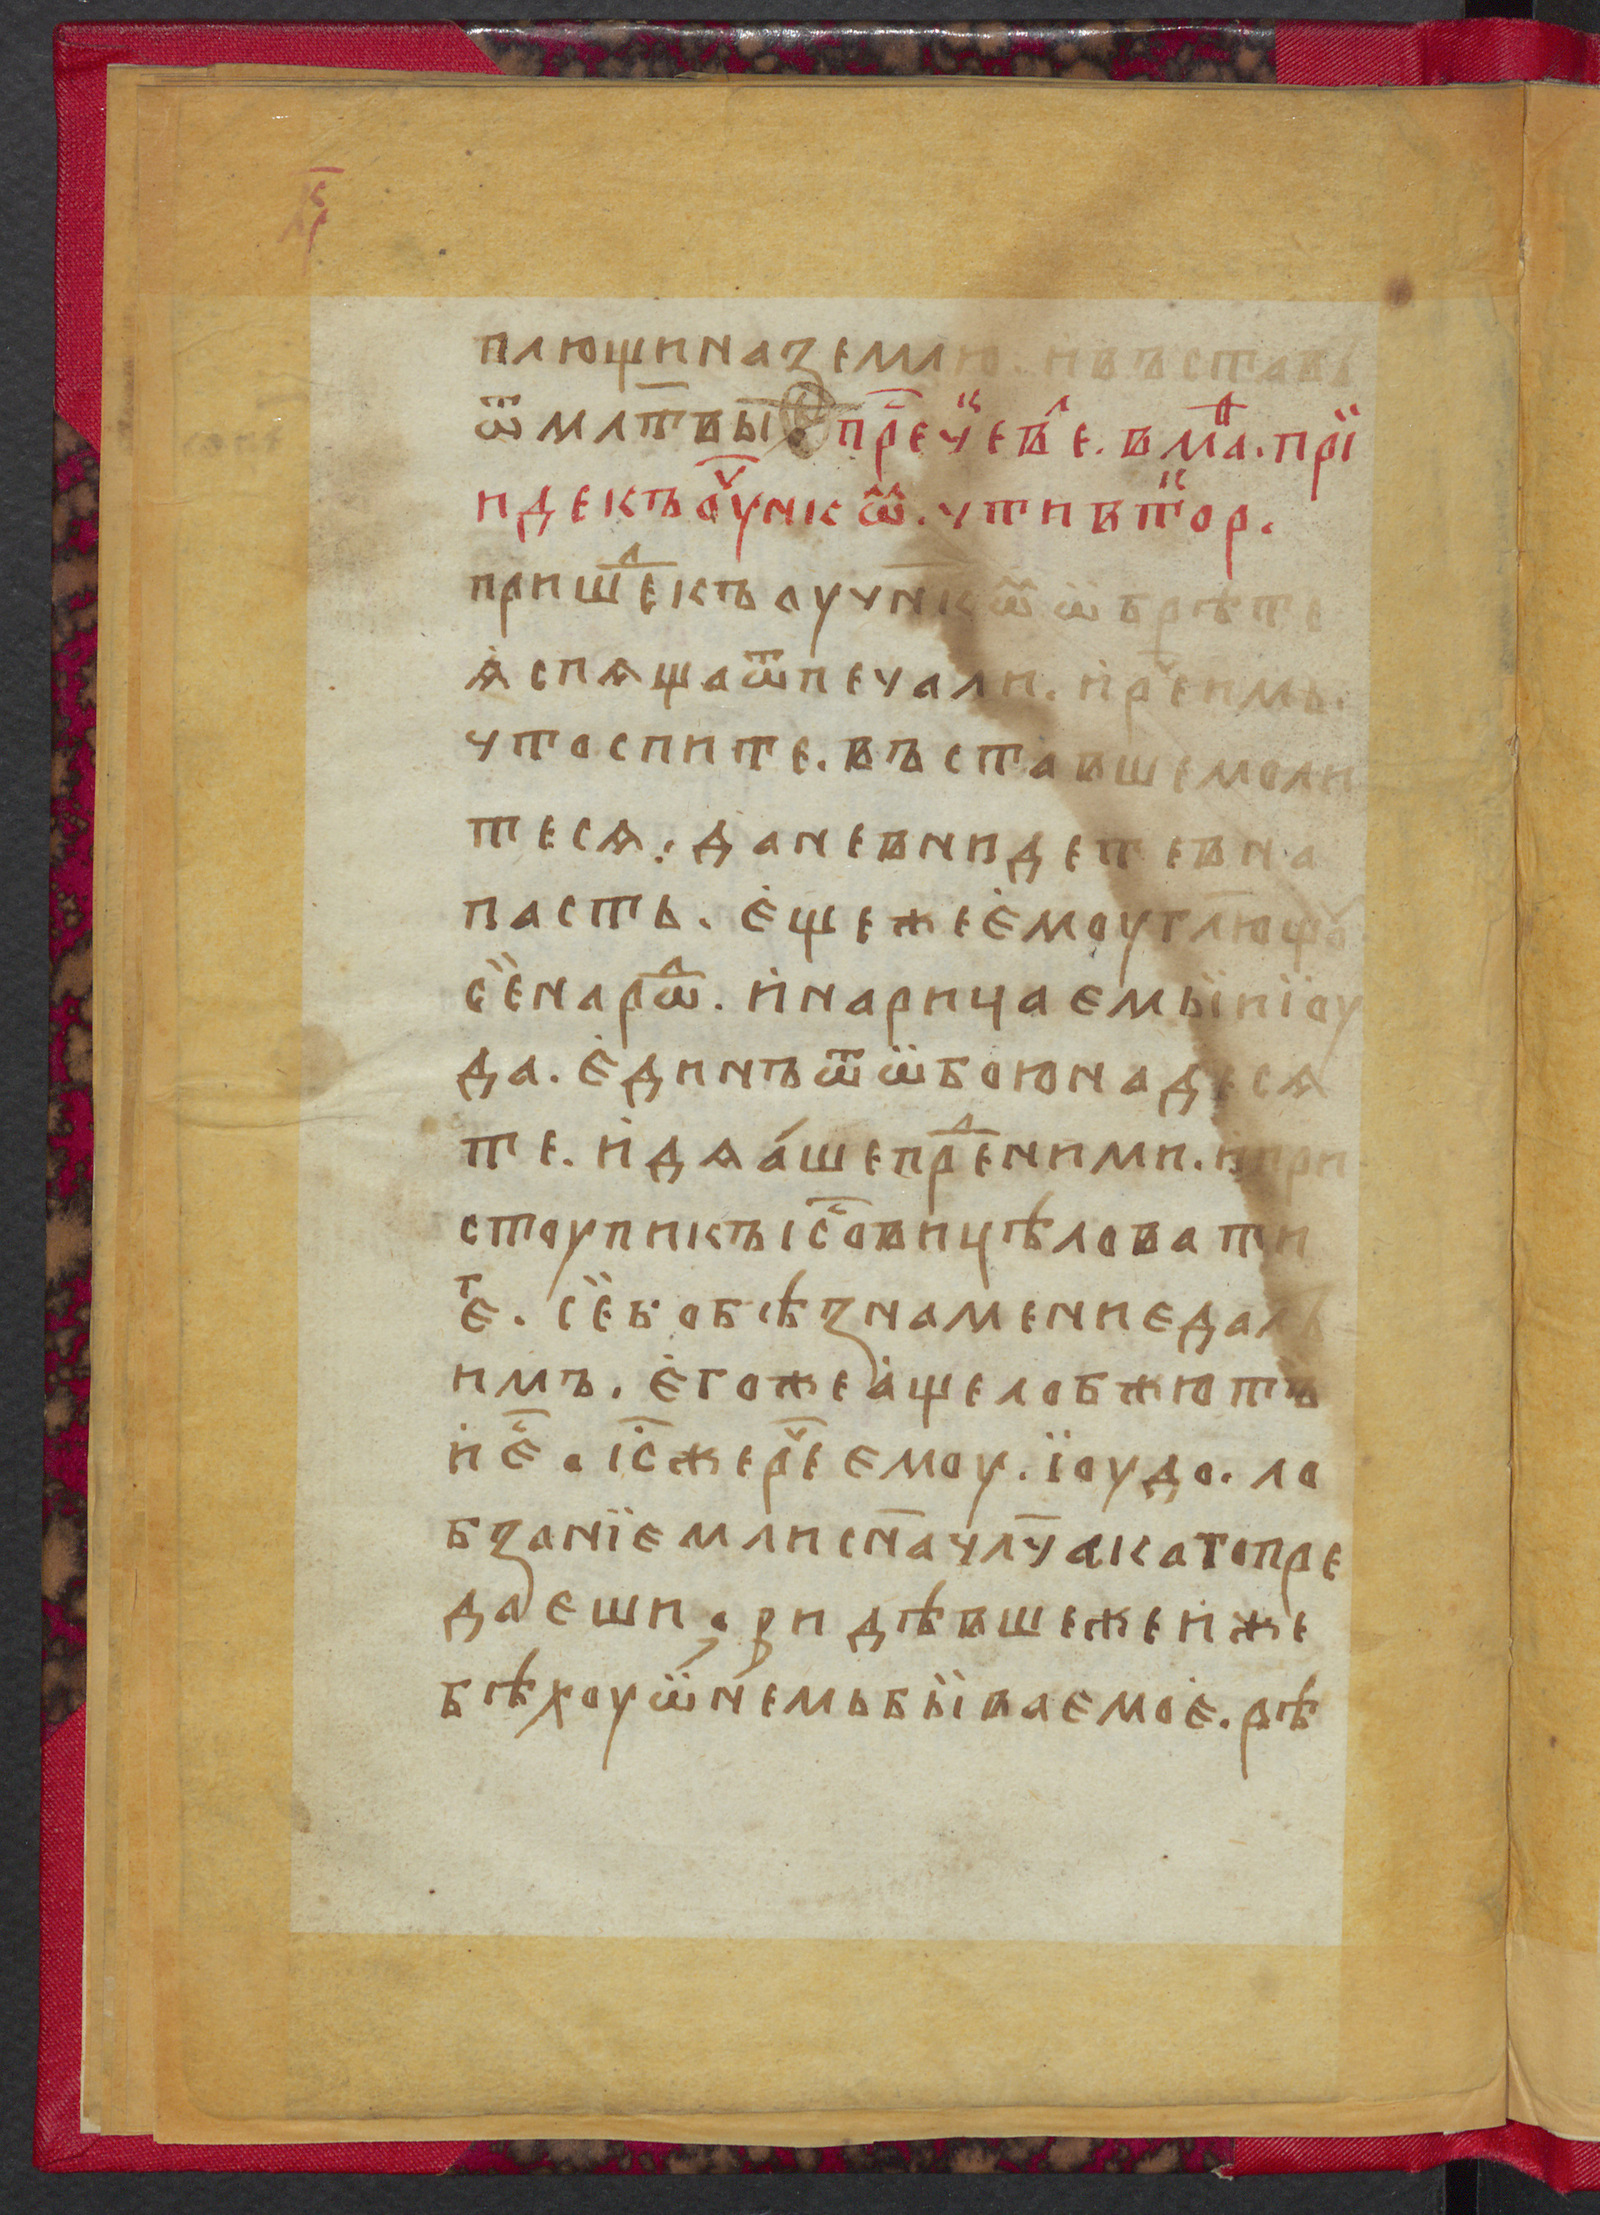 плющи на землю. и въставъ
ѿ мл҃твы. пре҃че в҃ е. в ма҃. прї
иде къ оу҃чнкѡ҃. чти вто҃р.
прише҃ къ оучн҃кѡ҃ ѡбрѣте
ѧ спѧща ѿ печали. и ре҃ имъ.
что спите. въставше моли
тесѧ. да не внидете в на
пасть. еще же емоу гл҃ющꙋ
се нарѡ҃. и нарицаемыи їоу
да. единъ ѿ ѡбоюнадесѧ
те. идѧаше пре҃ ними. и при
стоупи къ іс҃ови цѣловати
е҃. се бо бѣ знамение далъ
имъ. егоже аще лобжютъ
и е҃. іс҃ же ре҃ емоу. їоудо. ло
бзанїемли сн҃а чл҃часкаго пре
даеши. видѣвше же иже
бѣхоу ѡ немь бываемое. рѣ